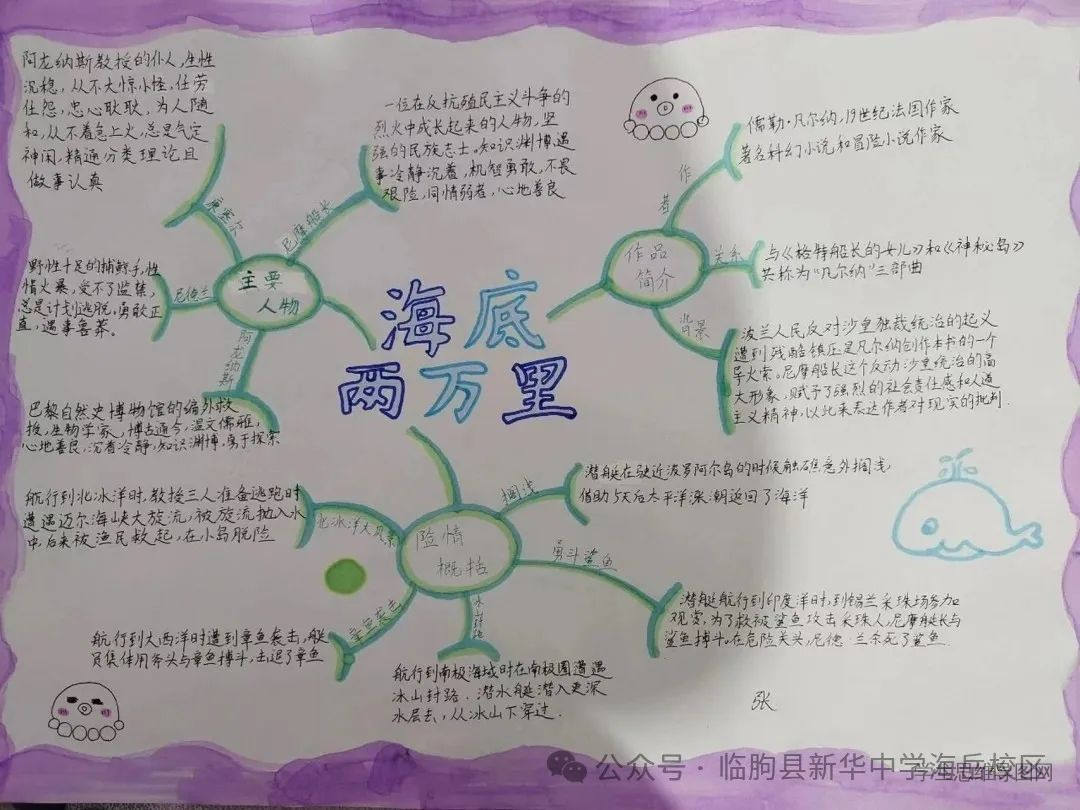 海底
两万里
主要
人物
康塞尔
阿龙纳斯教授的仆人,生性
沉稳,从不大惊小怪,任劳
任怨,忠心耿耿,为人随
和,从不着急上火,总是气定
神闲,精通分类理论且
做事认真
尼摩船长
一位在反抗殖民主义斗争的
烈火中成长起来的人物,坚
强的民族志士。知识渊博,遇
事冷静沉着,机智勇敢,不畏
艰险,同情弱者,心地善良
尼德兰
野性十足的捕鲸手,性
情火暴,受不了监禁,
总是计划逃脱,勇敢正
直,遇事鲁莽。
阿龙纳斯
巴黎自然史博物馆的编外教
授,生物学家,博古通今,温文儒雅,
心地善良,沉着冷静,知识渊博,勇于探索
作品
简介
作者
儒勒·凡尔纳,19世纪法国作家
著名科幻小说和冒险小说作家
关系
与《格特船长的女儿》和《神秘岛》
共称为“凡尔纳”三部曲
背景
波兰人民反对沙皇独裁统治的起义
遭到残酷镇压是凡尔纳创作本书的一个
导火索。尼摩船长这个反动沙皇统治的高
大形象,赋予了强烈的社会责任感和人道
主义精神,以此来表达作者对现实的批判.
险情
概括
搁浅
潜艇在驶近波罗阿尔岛的时候触礁意外搁浅,
借助5天后太平洋涨潮返回了海洋
勇斗鲨鱼
潜艇航行到印度洋时,到锡兰采珠场参加
观赏,为了救被鲨鱼攻击采珠人,尼摩艇长与
鲨鱼搏斗。在危险关头,尼德·兰杀死了鲨鱼.
冰封路
航行到南极海域时在南极圈遭遇
冰山封路.潜水艇潜入更深
水层去,从冰山下穿过.
章鱼袭击
航行到大西洋时遭到章鱼袭击,艇
员集体用斧头与章鱼搏斗,击退了章鱼
北冰洋大风暴
航行到北冰洋时,教授三人准备逃跑时
遭遇迈尔海峡大旋流,被旋流抛入水
中,后来被渔民救起,在小岛脱险
张
公众号·临朐县新华中学海岳校区